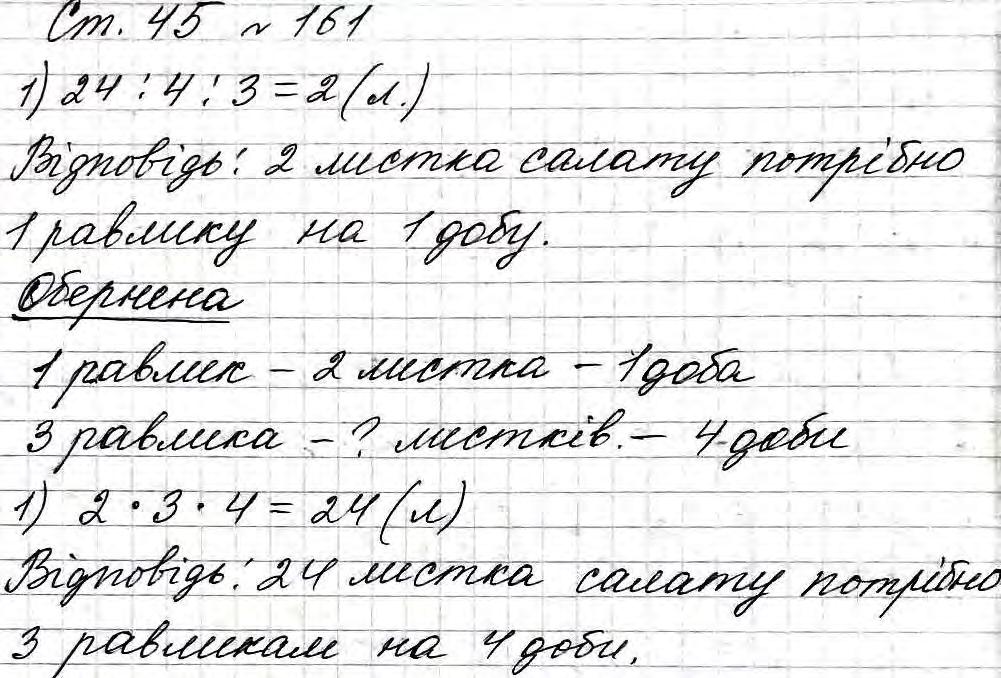 Ст. 45 № 161
1) 24 : 4 : 3 = 2 (л.)
Відповідь: 2 листка салату потрібно
1 равлику на 1 добу.
Обернена
1 равлик – 2 листка – 1 доба
3 равлика – ? листків. – 4 доби
1) 2 • 3 • 4 = 24 (л)
Відповідь: 24 листка салату потрібно
3 равликам на 4 доби.